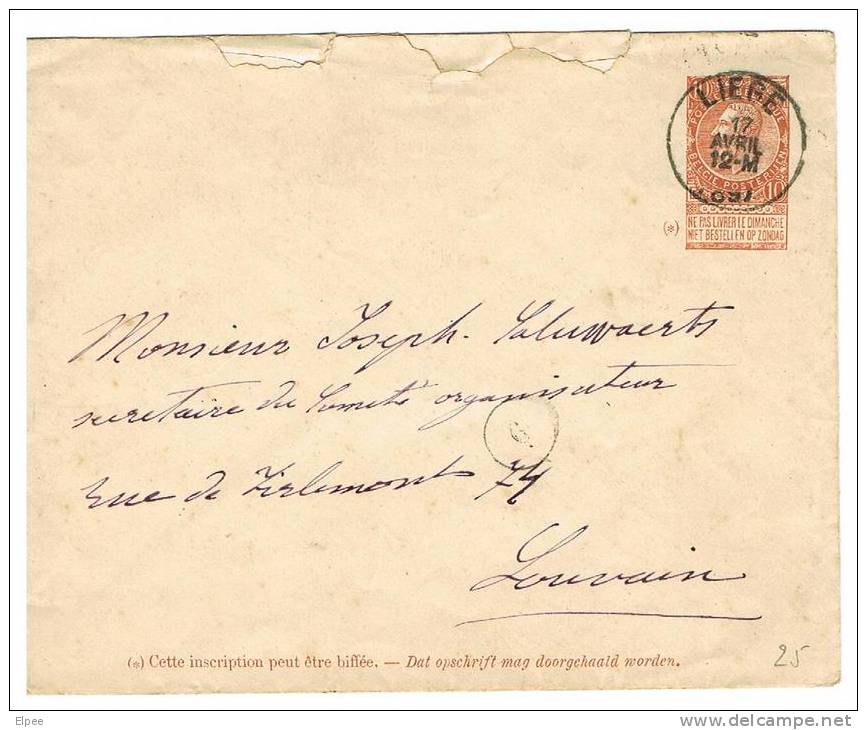 LIEGE
17
AVRIL
12-M
1897
10
BELGIE POSTERIJEN
10
(*) NE PAS LIVRER LE DIMANCHE
NIET BESTELLEN OP ZONDAG
Monsieur Joseph Saluwaerts
secretaire du Comité organisateur
6
rue de Tirlemont 74
Louvain
(*) Cette inscription peut être biffée. — Dat opschrift mag doorgehaald worden.
25
Elpee
www.delcampe.net